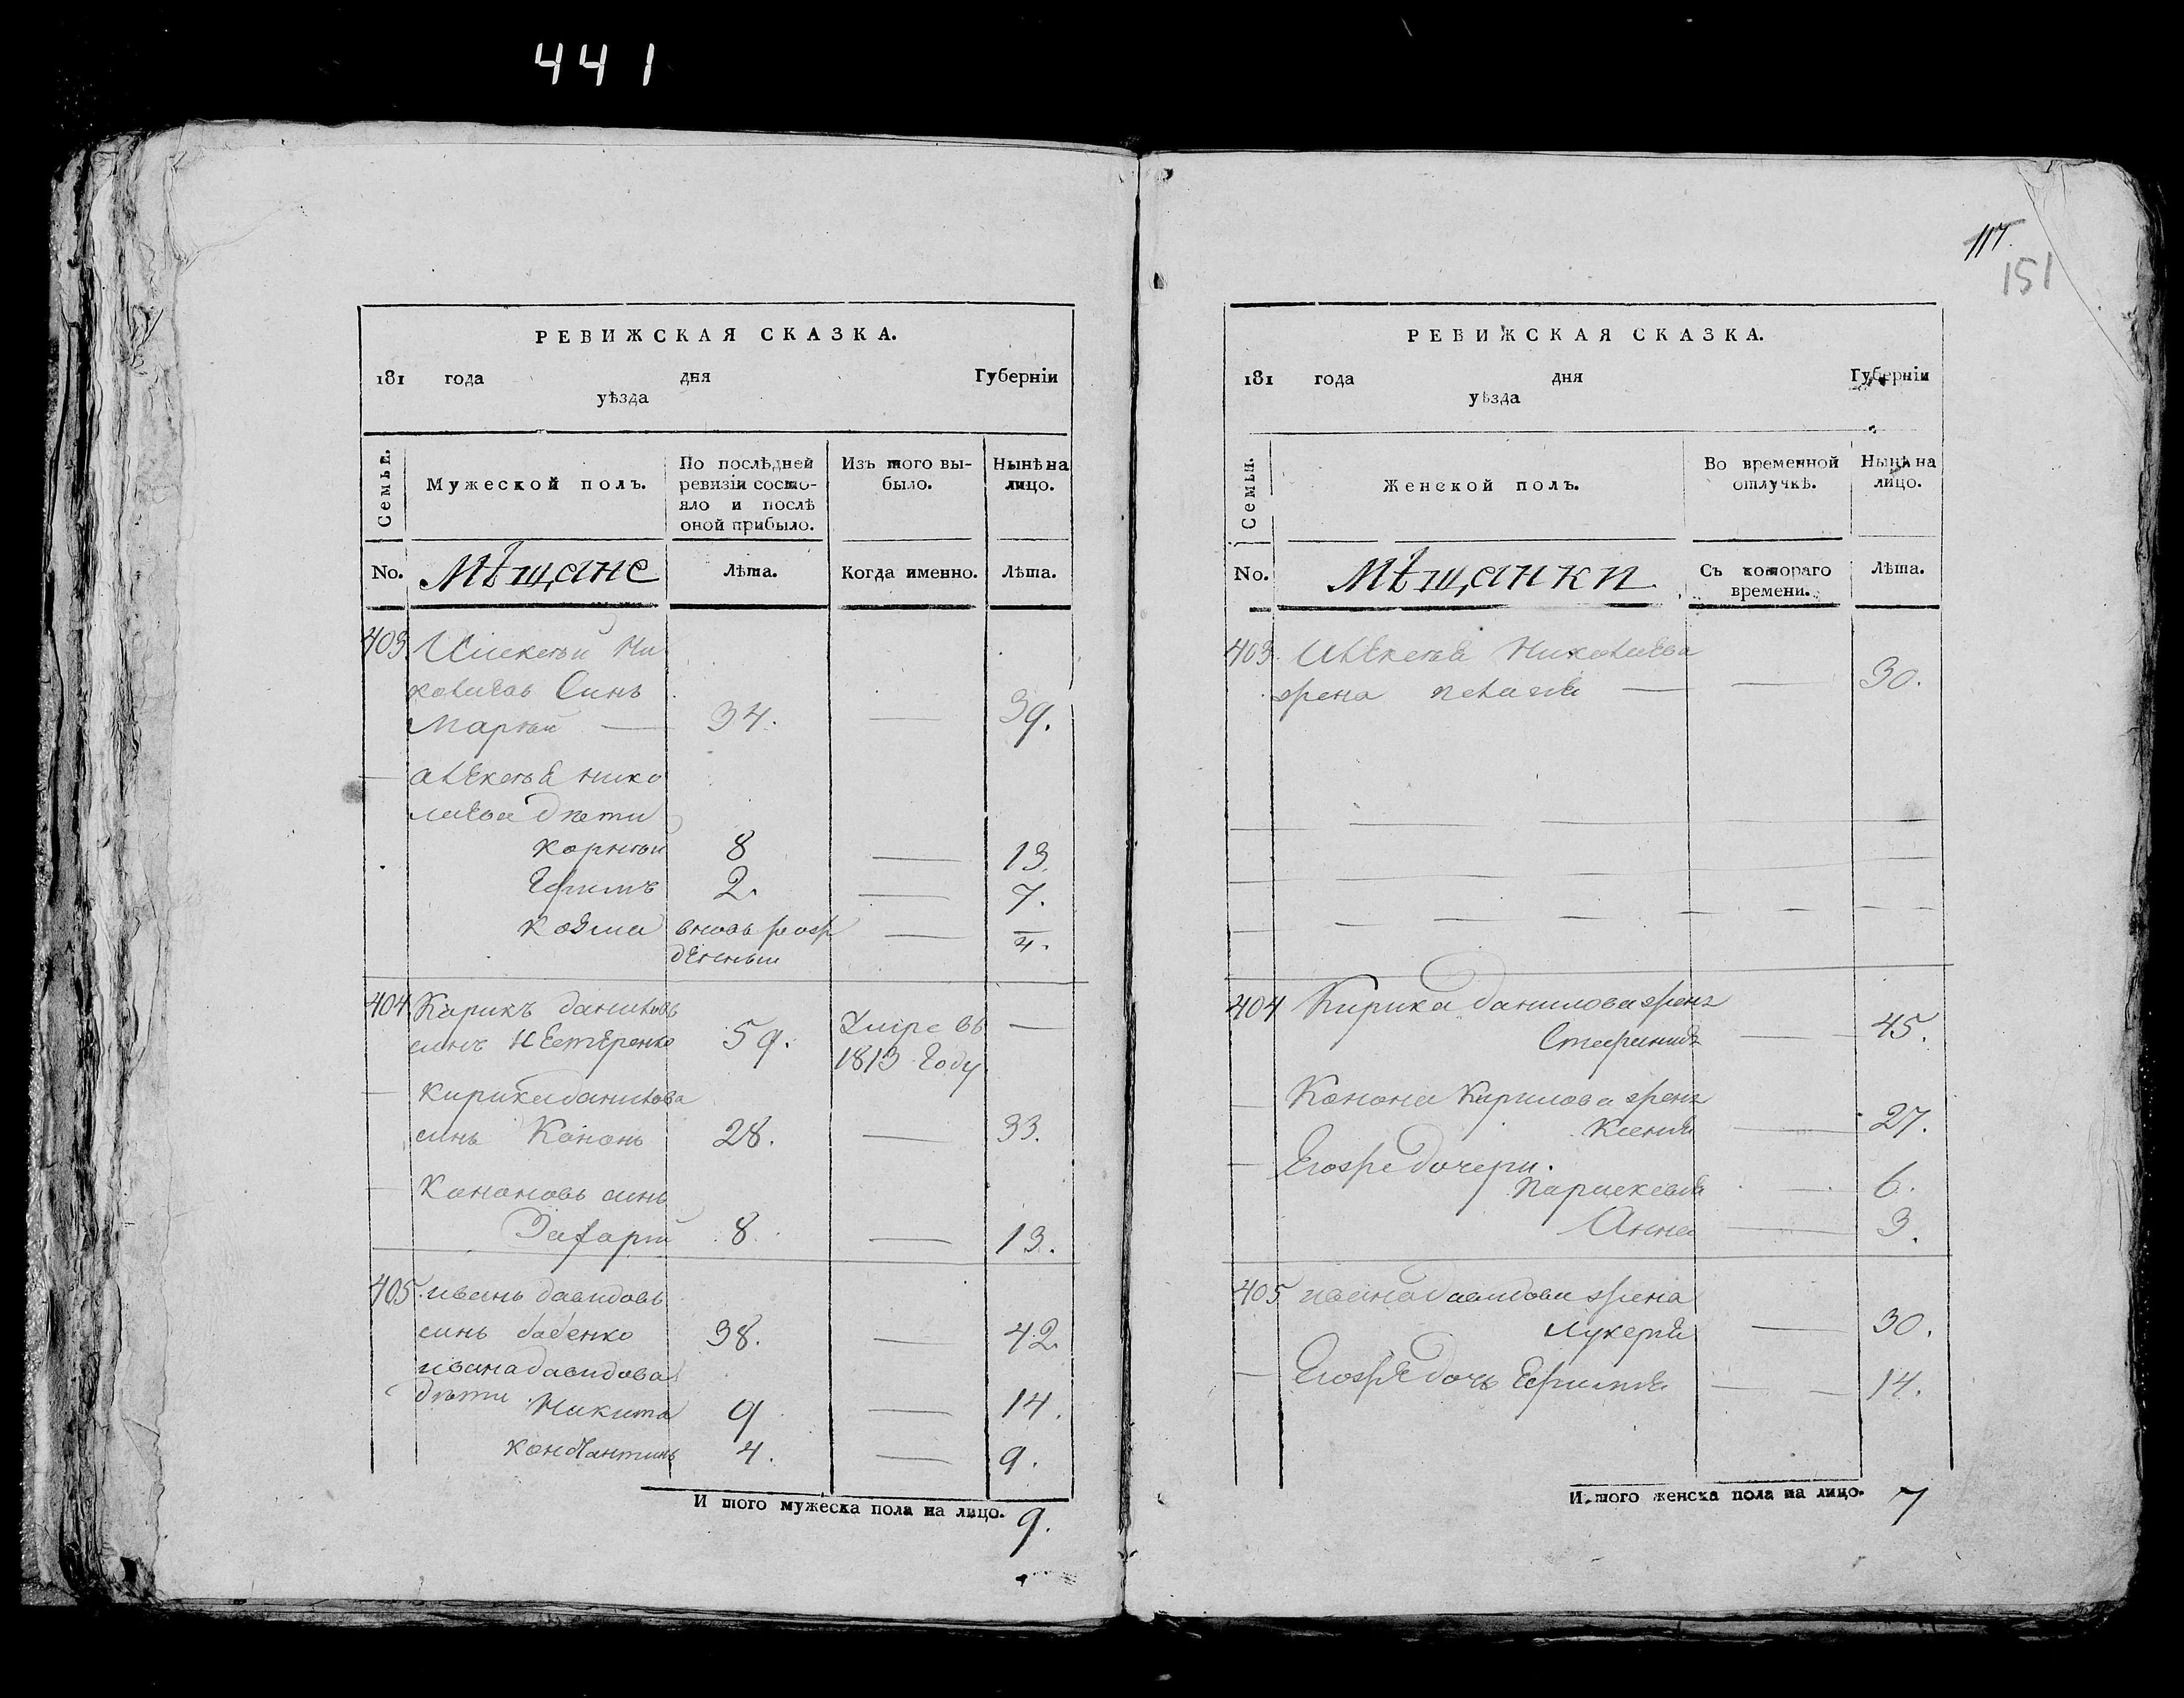 441
РЕВИЖСКАЯ СКАЗКА.
181 года дня Губерніи
уѣзда
Семьи.
Мужеской полъ.
По послѣдней ревизіи состояло и послѣ оной прибыло.
Изъ того выбыло.
Нынѣ на лицо.
No. Мѣщане Лѣта. Когда именно. Лѣта.
403. Алексѣй Ни
колаевъ Синъ
34. — 39.
алексѣя нико
лаева дѣти
Корнѣй 8 — 13.
Ефимъ 2. — 7.
Козма вновь рож — 4.
денный
404 Кирикъ даниловъ Умре въ —
синъ нестеренко 59. 1813 Году
— Кирика данилова
синъ Кононъ 28. — 33.
— Кононовъ синъ
Захарій 8. — 13.
405. иванъ давидовъ
синъ бабенко 38. — 42.
ивана давидова
дѣти Никита 9 — 14.
константинъ 4. — 9.
И того мужеска пола на лицо. 9.
117.
151
РЕВИЖСКАЯ СКАЗКА.
181 года дня Губерніи
уѣзда
Семья.
Женской полъ.
Во временной отлучкѣ.
Нынѣ на лицо.
No. Мѣщанки Съ котораго времени. Лѣта.
403. Алексѣя Николаева
жена пелагея — — 30.
404 Кирика данилова жена
Стефанида — 45.
— Конона Кирилова жена
Ксенія — 27.
— Егожъ дочери.
Параскевія — 6.
Анна — 3.
405 ивана давидова жена
Лукерія — 30.
— Егожъ дочь Ефимія — — 14.
И того женска пола на лицо. 7